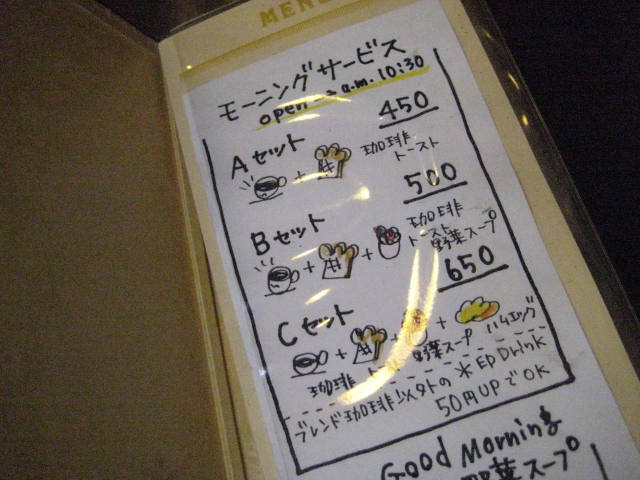 MENU
モーニングサービス
open → a.m. 10:30
Aセット 450
珈琲
トースト
Bセット 500
珈琲
トースト
野菜スープ
Cセット 650
珈琲 野菜スープ ハムエッグ
ブレンド珈琲以外の
50円UPでOK
Good Morning
野菜スープ